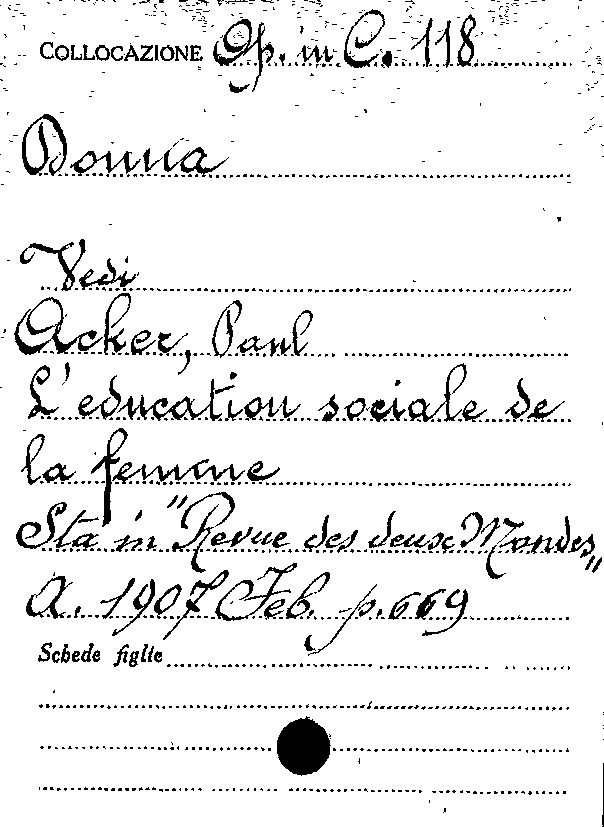 COLLOCAZIONE Op. in C. 118
Donna
Vedi
Acker, Paul
L'education sociale de
la femme
Sta in "Revue des deux Mondes„
A. 1907 Feb. p. 669
Schede figlie